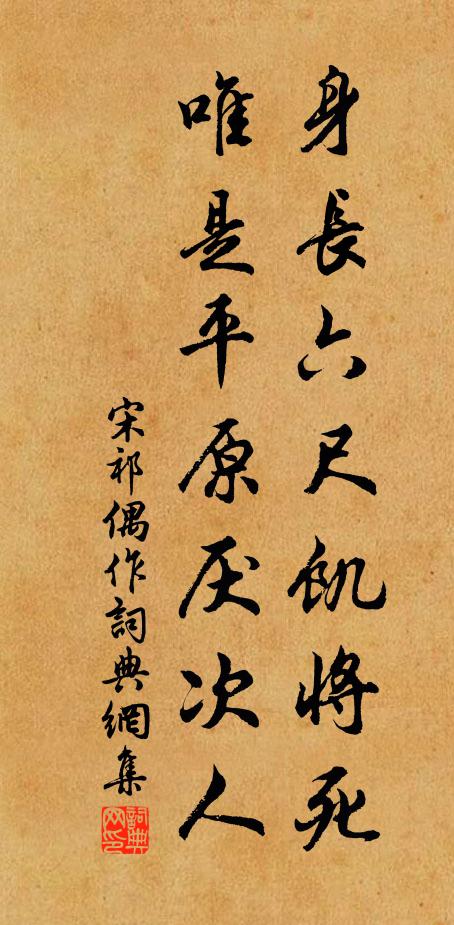 身長六尺飢將死
唯是平原厌次人
宋祁偶作詞典網集
詞典网印